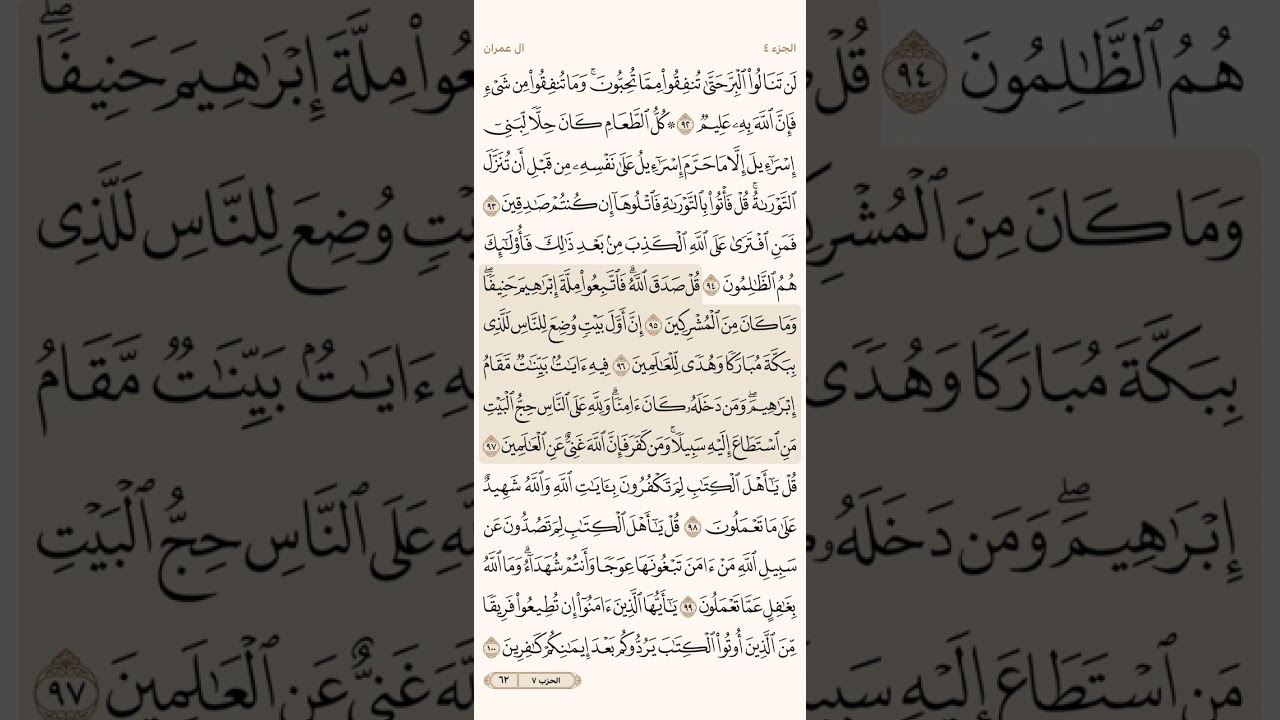 الجزء ٤
آل عمران
لَن تَنَالُوا۟ ٱلْبِرَّ حَتَّىٰ تُنفِقُوا۟ مِمَّا تُحِبُّونَ ۚ وَمَا تُنفِقُوا۟ مِن شَىْءٍ
فَإِنَّ ٱللَّهَ بِهِۦ عَلِيمٌ ٩٢ ۞ كُلُّ ٱلطَّعَامِ كَانَ حِلًّا لِّبَنِىٓ
إِسْرَٰٓءِيلَ إِلَّا مَا حَرَّمَ إِسْرَٰٓءِيلُ عَلَىٰ نَفْسِهِۦ مِن قَبْلِ أَن تُنَزَّلَ
ٱلتَّوْرَىٰةُ ۗ قُلْ فَأْتُوا۟ بِٱلتَّوْرَىٰةِ فَٱتْلُوهَآ إِن كُنتُمْ صَٰدِقِينَ ٩٣
فَمَنِ ٱفْتَرَىٰ عَلَى ٱللَّهِ ٱلْكَذِبَ مِنۢ بَعْدِ ذَٰلِكَ فَأُو۟لَٰٓئِكَ
هُمُ ٱلظَّٰلِمُونَ ٩٤ قُلْ صَدَقَ ٱللَّهُ ۗ فَٱتَّبِعُوا۟ مِلَّةَ إِبْرَٰهِيمَ حَنِيفًا ۖ
وَمَا كَانَ مِنَ ٱلْمُشْرِكِينَ ٩٥ إِنَّ أَوَّلَ بَيْتٍ وُضِعَ لِلنَّاسِ لَلَّذِى
بِبَكَّةَ مُبَارَكًا وَهُدًى لِّلْعَٰلَمِينَ ٩٦ فِيهِ ءَايَٰتٌۢ بَيِّنَٰتٌ مَّقَامُ
إِبْرَٰهِيمَ ۖ وَمَن دَخَلَهُۥ كَانَ ءَامِنًا ۗ وَلِلَّهِ عَلَى ٱلنَّاسِ حِجُّ ٱلْبَيْتِ
مَنِ ٱسْتَطَاعَ إِلَيْهِ سَبِيلًا ۚ وَمَن كَفَرَ فَإِنَّ ٱللَّهَ غَنِىٌّ عَنِ ٱلْعَٰلَمِينَ ٩٧
قُلْ يَٰٓأَهْلَ ٱلْكِتَٰبِ لِمَ تَكْفُرُونَ بِـَٔايَٰتِ ٱللَّهِ وَٱللَّهُ شَهِيدٌ
عَلَىٰ مَا تَعْمَلُونَ ٩٨ قُلْ يَٰٓأَهْلَ ٱلْكِتَٰبِ لِمَ تَصُدُّونَ عَن
سَبِيلِ ٱللَّهِ مَنْ ءَامَنَ تَبْغُونَهَا عِوَجًا وَأَنتُمْ شُهَدَآءُ ۗ وَمَا ٱللَّهُ
بِغَٰفِلٍ عَمَّا تَعْمَلُونَ ٩٩ يَٰٓأَيُّهَا ٱلَّذِينَ ءَامَنُوٓا۟ إِن تُطِيعُوا۟ فَرِيقًا
مِّنَ ٱلَّذِينَ أُوتُوا۟ ٱلْكِتَٰبَ يَرُدُّوكُم بَعْدَ إِيمَٰنِكُمْ كَٰفِرِينَ ١٠٠
الحزب ٧ ٦٢
هُمُ ٱلظَّٰلِمُونَ ٩٤ قُلْ
وَمَا كَانَ مِنَ ٱلْمُشْرِكِ
بِبَكَّةَ مُبَارَكًا وَهُدًى
إِبْرَٰهِيمَ ۖ وَمَن دَخَلَهُۥ
مَنِ ٱسْتَطَاعَ إِلَيْهِ
عُوا۟ مِلَّةَ إِبْرَٰهِيمَ حَنِيفًا ۖ
يْتٍ وُضِعَ لِلنَّاسِ لَلَّذِى
هِ ءَايَٰتٌۢ بَيِّنَٰتٌ مَّقَامُ
لَّهِ عَلَى ٱلنَّاسِ حِجُّ ٱلْبَيْتِ
لَّهَ غَنِىٌّ عَنِ ٱلْعَٰلَمِينَ ٩٧